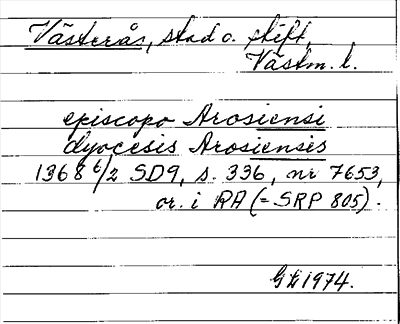 Västerås, stad o. stift,
Västm. l.
episcopo Arosiensi
dyocesis Arosiensis
1368 6/2 SD9, s. 336, nr 7653,
or. i RA (= SRP 805).
1974.